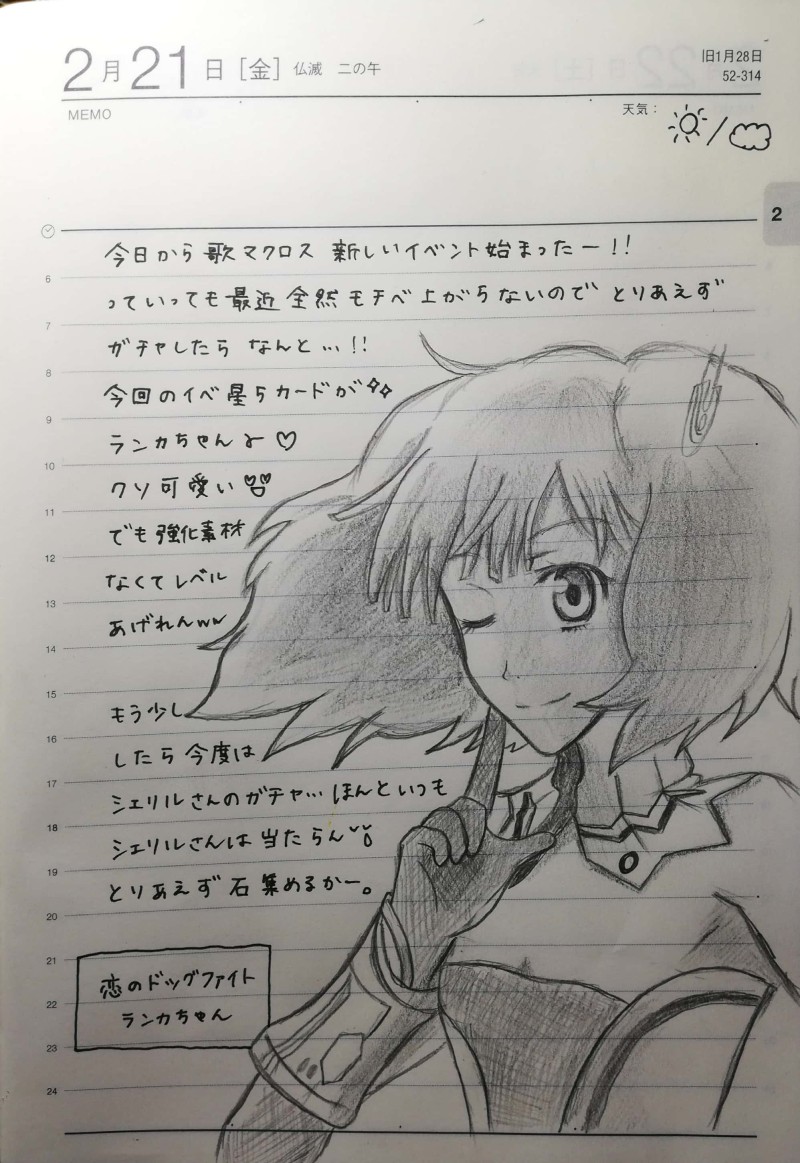 2月21日[金] 仏滅 二の午
旧1月28日
52-314
MEMO
天気:
2
今日から歌マクロス 新しいイベント始まったー!!
っていっても最近全然モチベ上がらないので とりあえず
ガチャしたら なんと…!!
今回のイベ星5カードが
ランカちゃんよ♡
クソ可愛い
でも強化素材
なくてレベル
あげれんww
もう少し
したら今度は
シェリルさんのガチャ… ほんといつも
シェリルさんは当たらん
とりあえず石集めるかー。
恋のドッグファイト
ランカちゃん
6
7
8
9
10
11
12
13
14
15
16
17
18
19
20
21
22
23
24